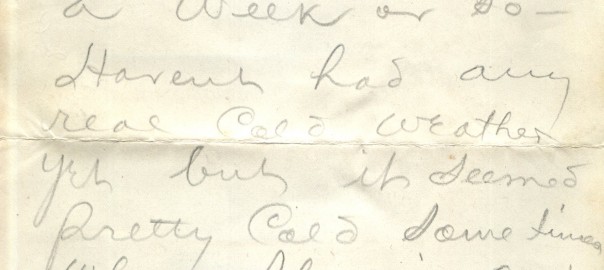 a Week or so —
Havent had any
real Cold Weather
yet but it seemed
pretty Cold Some times